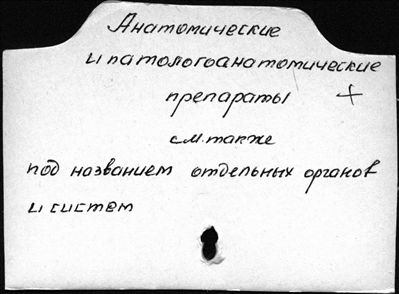 Анатомические
и патологоанатомические
препараты +
см. также
под названием отдельных органов
и систем